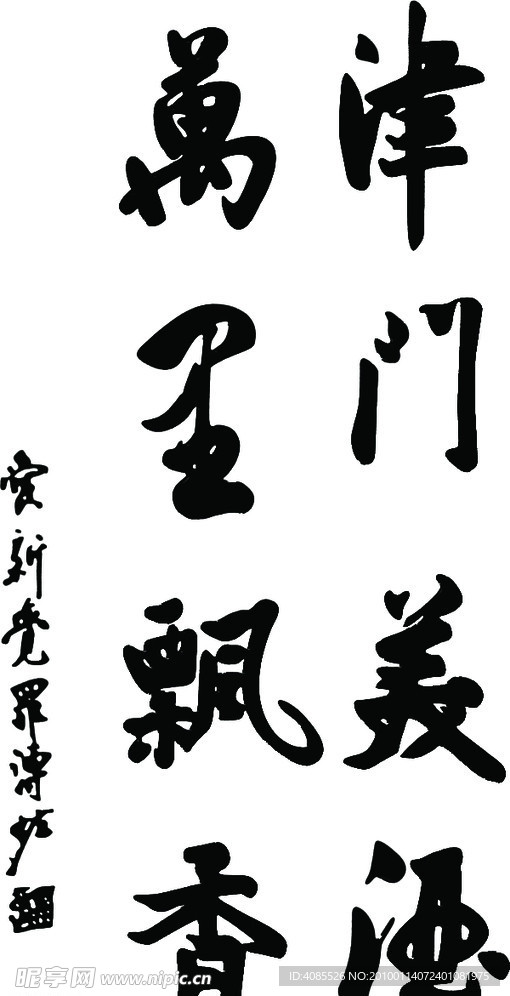 津門美酒
萬里飄香
愛新覺羅溥佐
昵享网 www.nipic.cn
ID:4085526 NO:20100114072401081975